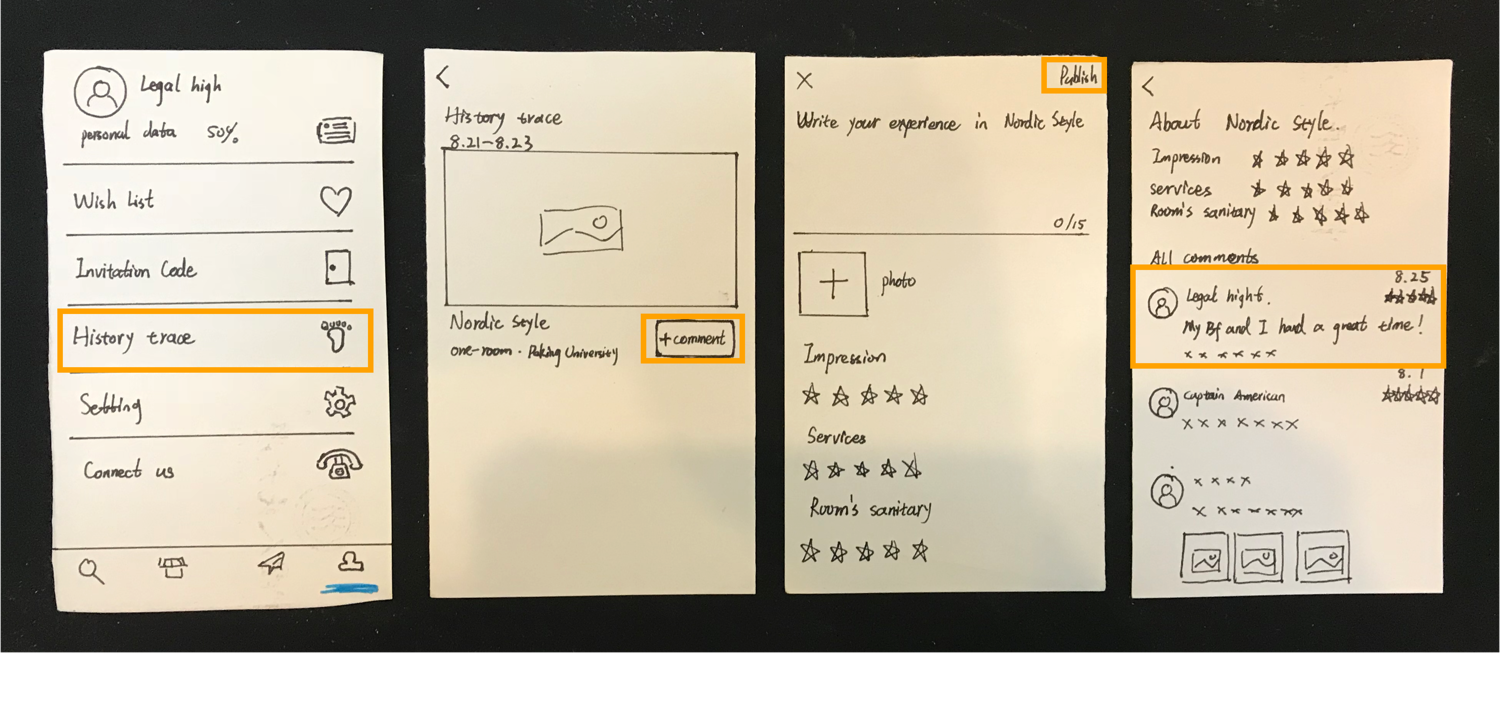 Legal high
personal data 50%
Wish List
Invitation Code
History trace
Setting
Connect us
History trace
8.21-8.23
Nordic Style
one-room · Paking University
+comment
Publish
Write your experience in Nordic Style
0/15
photo
Impression
Services
Room's sanitary
About Nordic Style.
Impression
services
Room's sanitary
All comments
8.25
Legal hight.
My Bf and I had a great time!
x x x x x x
8.1
Captain American
x x x x x x x
x x x x
x x x x x x x